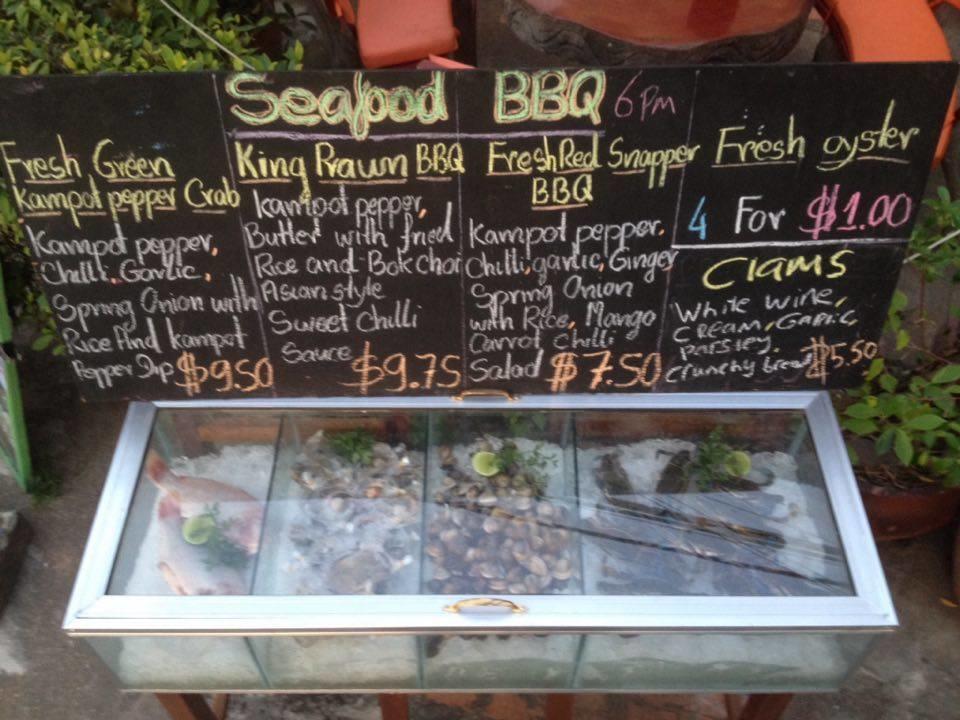 Seafood BBQ 6pm
Fresh Green
Kampot pepper Crab
Kampot pepper,
Chilli, Garlic,
Spring Onion with
Rice And kampot
Pepper Dip $9.50
King Prawn BBQ
Kampot pepper,
Butter with fried
Rice and Bok choi
Asian style
Sweet Chilli
Sauce $9.75
Fresh Red Snapper
BBQ
Kampot pepper,
Chilli, garlic, Ginger
Spring Onion
with Rice, Mango
Carrot chilli
Salad $7.50
Fresh oyster
4 For $1.00
Clams
White wine,
Cream, Garlic,
parsley,
crunchy bread $5.50